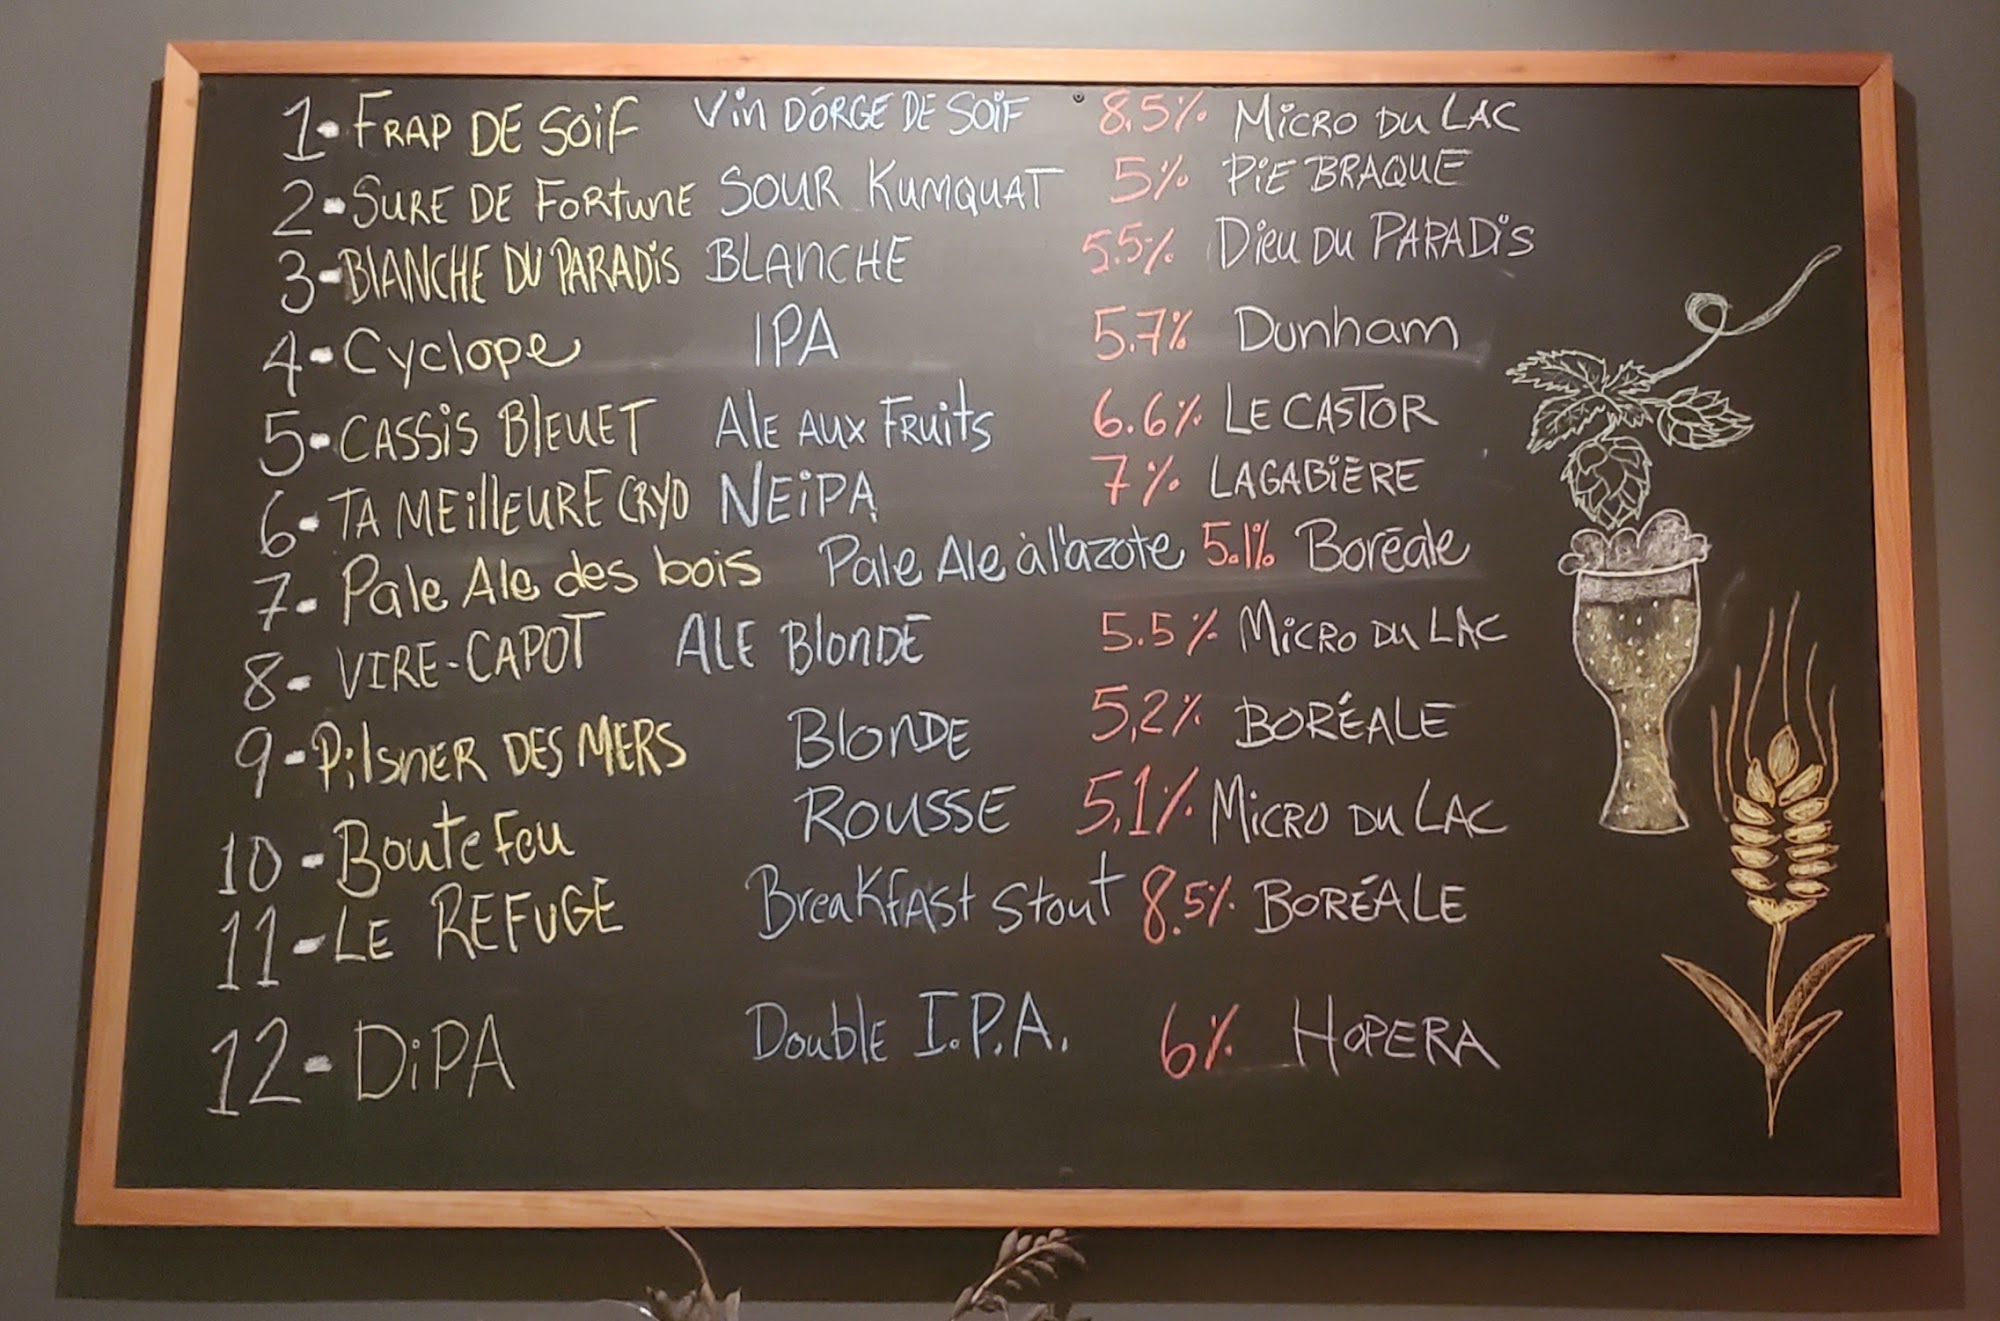 1- FRAP DE SOIF Vin D'ORGE DE SOIF 8.5% MICRO DU LAC
2- SURE DE FORTUNE SOUR KUMQUAT 5% PIE BRAQUE
3- BLANCHE DU PARADIS BLANCHE 5.5% DIEU DU PARADIS
4- Cyclope IPA 5.7% Dunham
5- CASSIS BLEUET ALE AUX FRUITS 6.6% LE CASTOR
6- TA MEILLEURE CRYO NEIPA 7% LAGABIÈRE
7- Pale Ale des bois Pale Ale à l'azote 5.1% Boréale
8- VIRE-CAPOT ALE BLONDE 5.5% MICRO DU LAC
9- PILSNER DES MERS BLONDE 5,2% BORÉALE
10- Boutefeu ROUSSE 5,1% MICRO DU LAC
11- LE REFUGE BreakFAst Stout 8.5% BORÉALE
12- DiPA Double I.P.A. 6% HOPERA